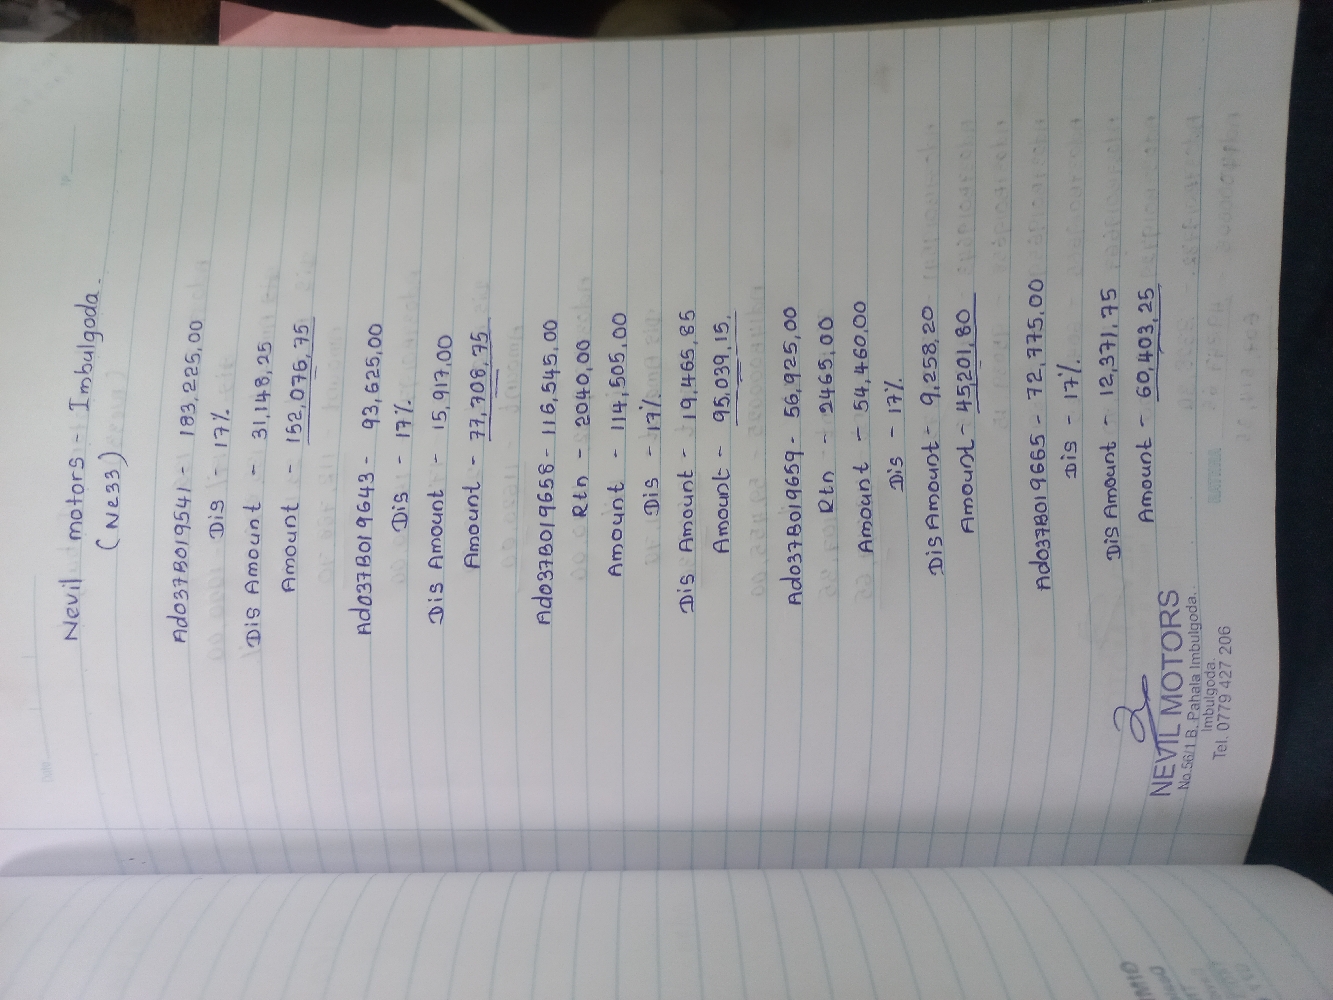 Nevil motors - Imbulgoda.
(Ne33)
Ad037B019541 - 183,225,00
Dis - 17%
Dis Amount - 31,148,25
Amount - 152,076,75
Ad037B019643 - 93,625,00
Dis - 17%
Dis Amount - 15,917,00
Amount - 77,708,75
Ad037B019658 - 116,545,00
Rtn - 2040,00
Amount - 114,505,00
Dis - 17%
Dis Amount - 19,465,85
Amount - 95,039,15,
Ad037B019659 - 56,925,00
Rtn - 2465,00
Amount - 54,460,00
Dis - 17%
Dis Amount - 9,258,20
Amount - 45201,80
Ad037B019665 - 72,775,00
Dis - 17%
Dis Amount - 12,371,75
Amount - 60,403,25
NEVIL MOTORS
No.56/1 B, Pahala Imbulgoda,
Imbulgoda.
Tel. 0779 427 206